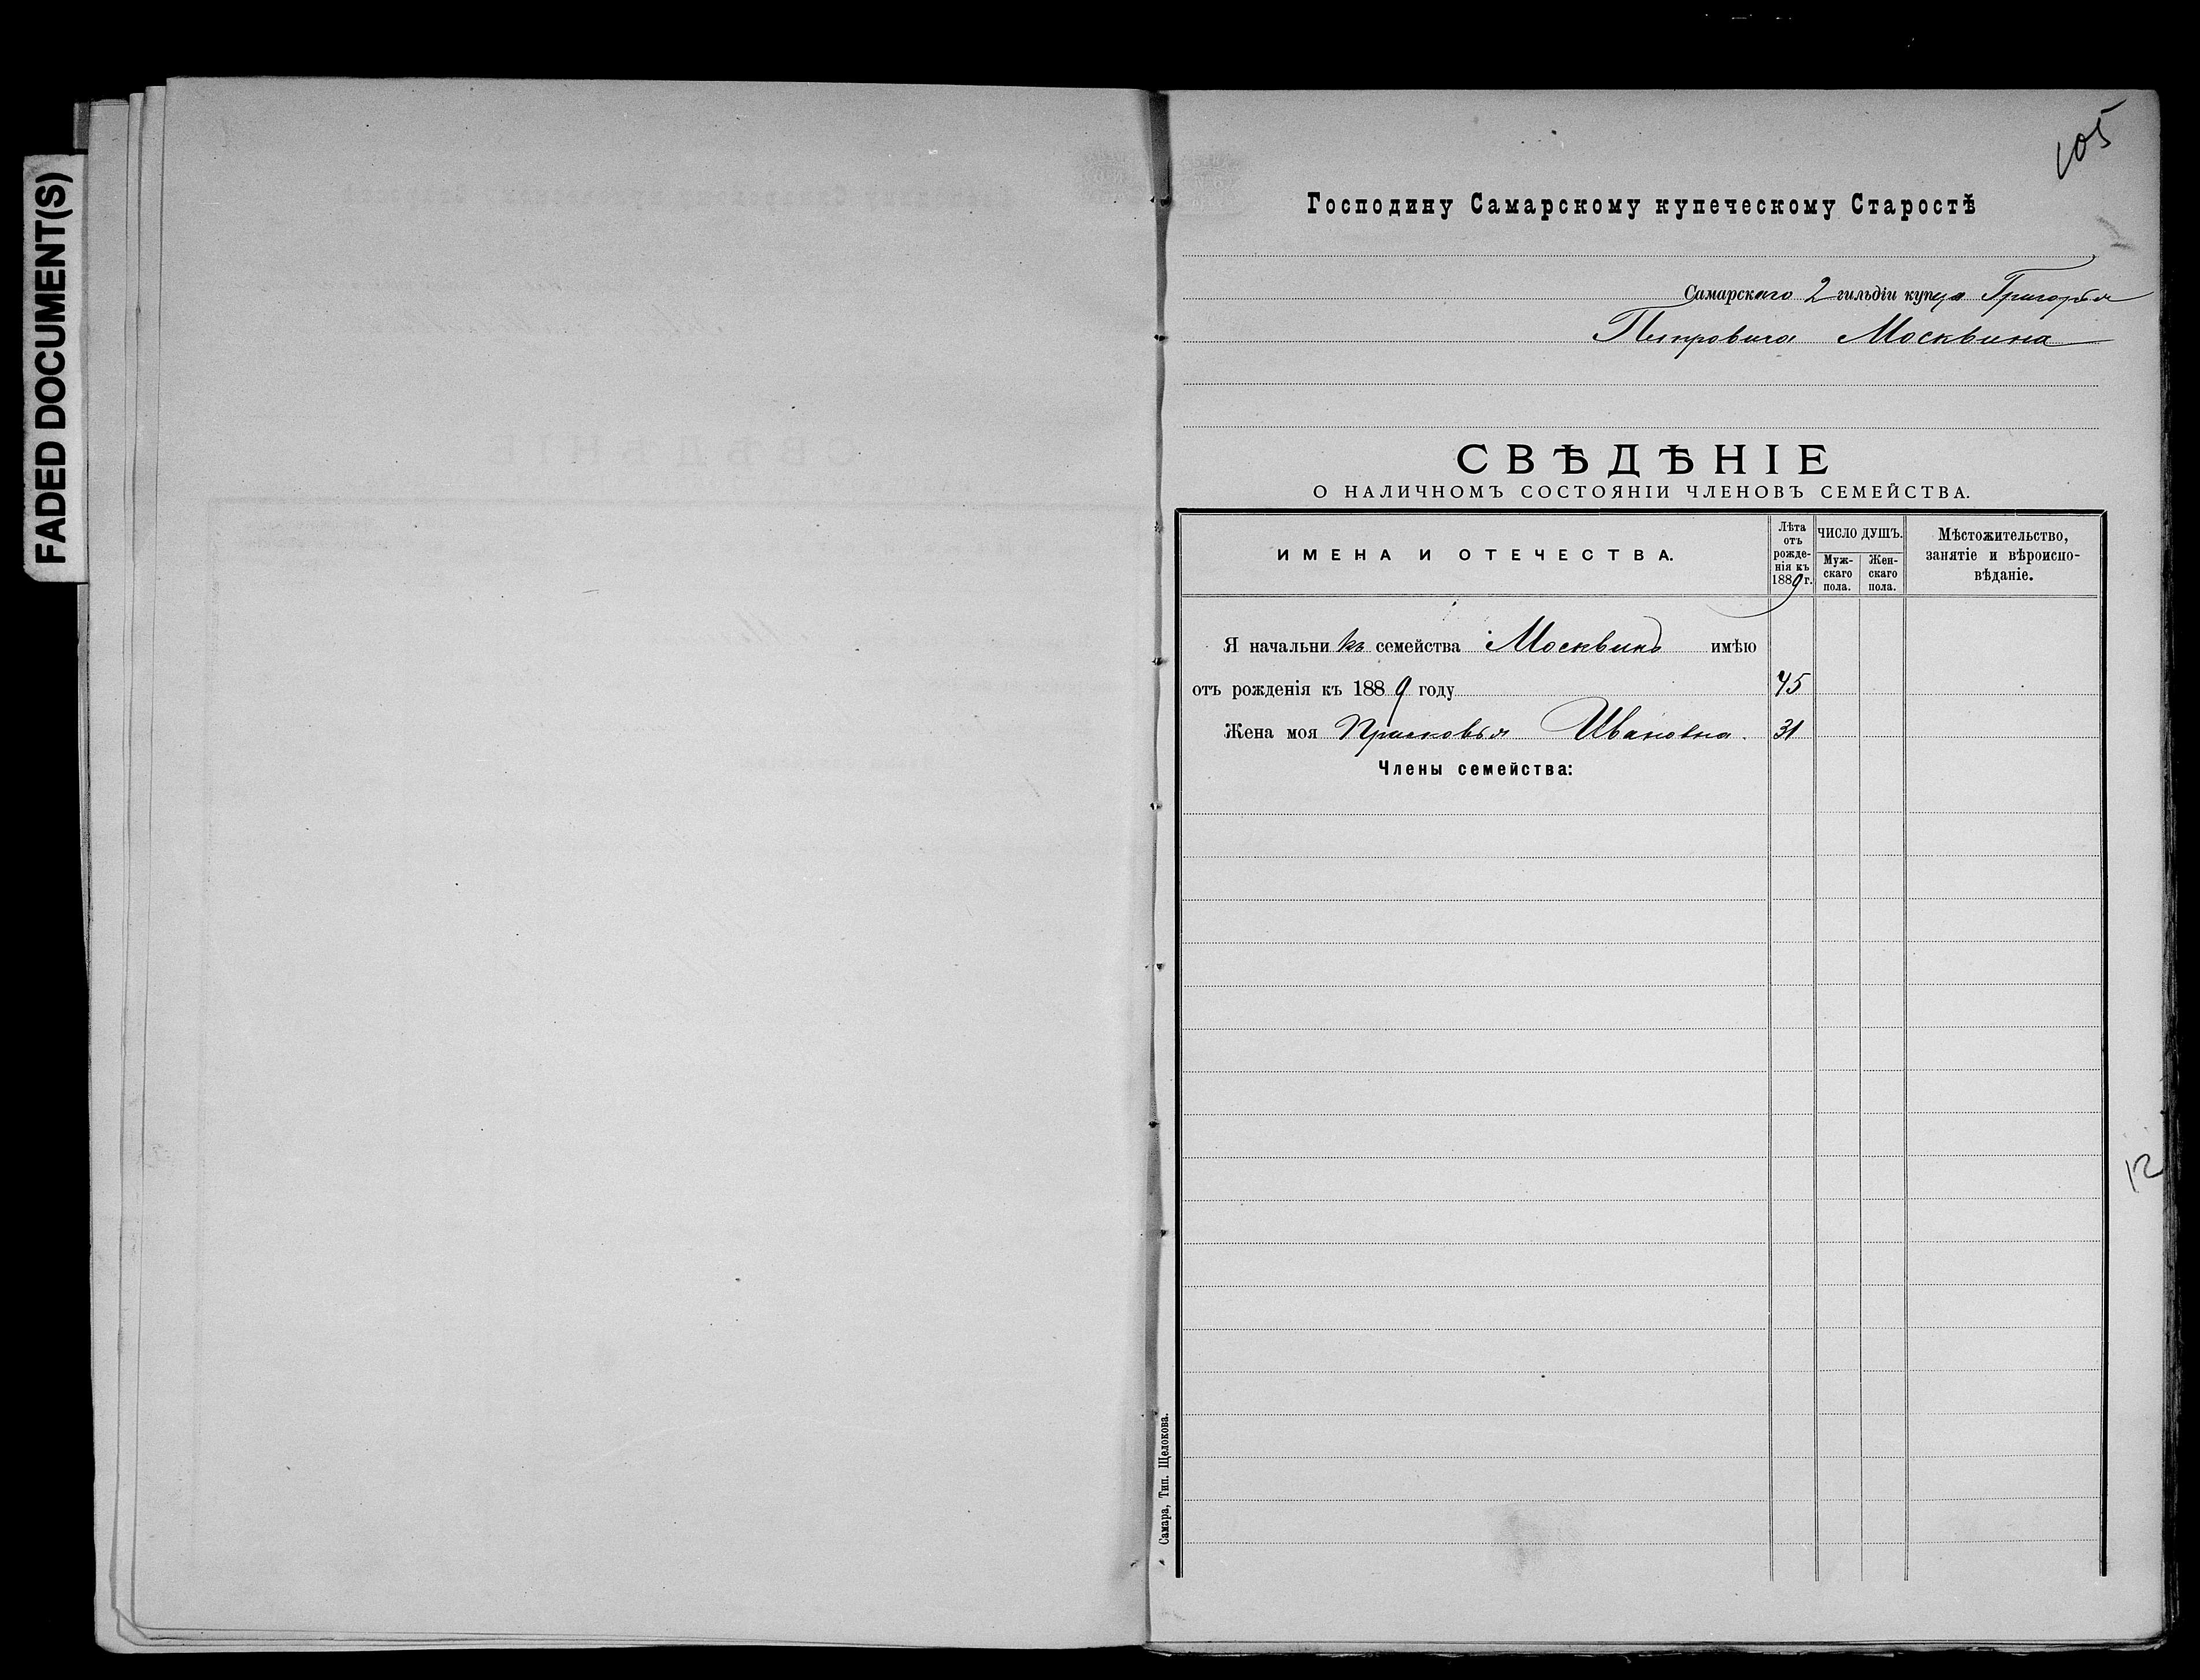 FADED DOCUMENT(S)
105
Господину Самарскому купеческому Старостѣ
Самарскаго 2 гильдіи купца Григорья
Петровича Москвина
СВѢДѢНІЕ
О НАЛИЧНОМЪ СОСТОЯНІИ ЧЛЕНОВЪ СЕМЕЙСТВА.
ИМЕНА И ОТЕЧЕСТВА.
Лѣта
отъ
рожде-
нія къ
1889 г.
ЧИСЛО ДУШЪ.
Муж-
скаго
пола.
Жен-
скаго
пола.
Мѣстожительство,
занятіе и вѣроиспо-
вѣданіе.
Я начальникъ семейства Москвинъ имѣю
отъ рожденія къ 1889 году 45
Жена моя Прасковья Ивановна. 31
Члены семейства:
12
Самара, Тип. Щелокова.